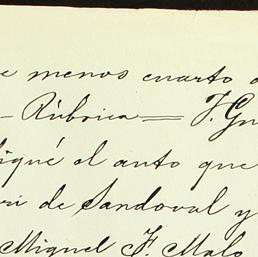 e menos cuarto
- Rúbrica = F. Gu
iqué el auto que
ri de Sandoval y
Miguel F. Malo